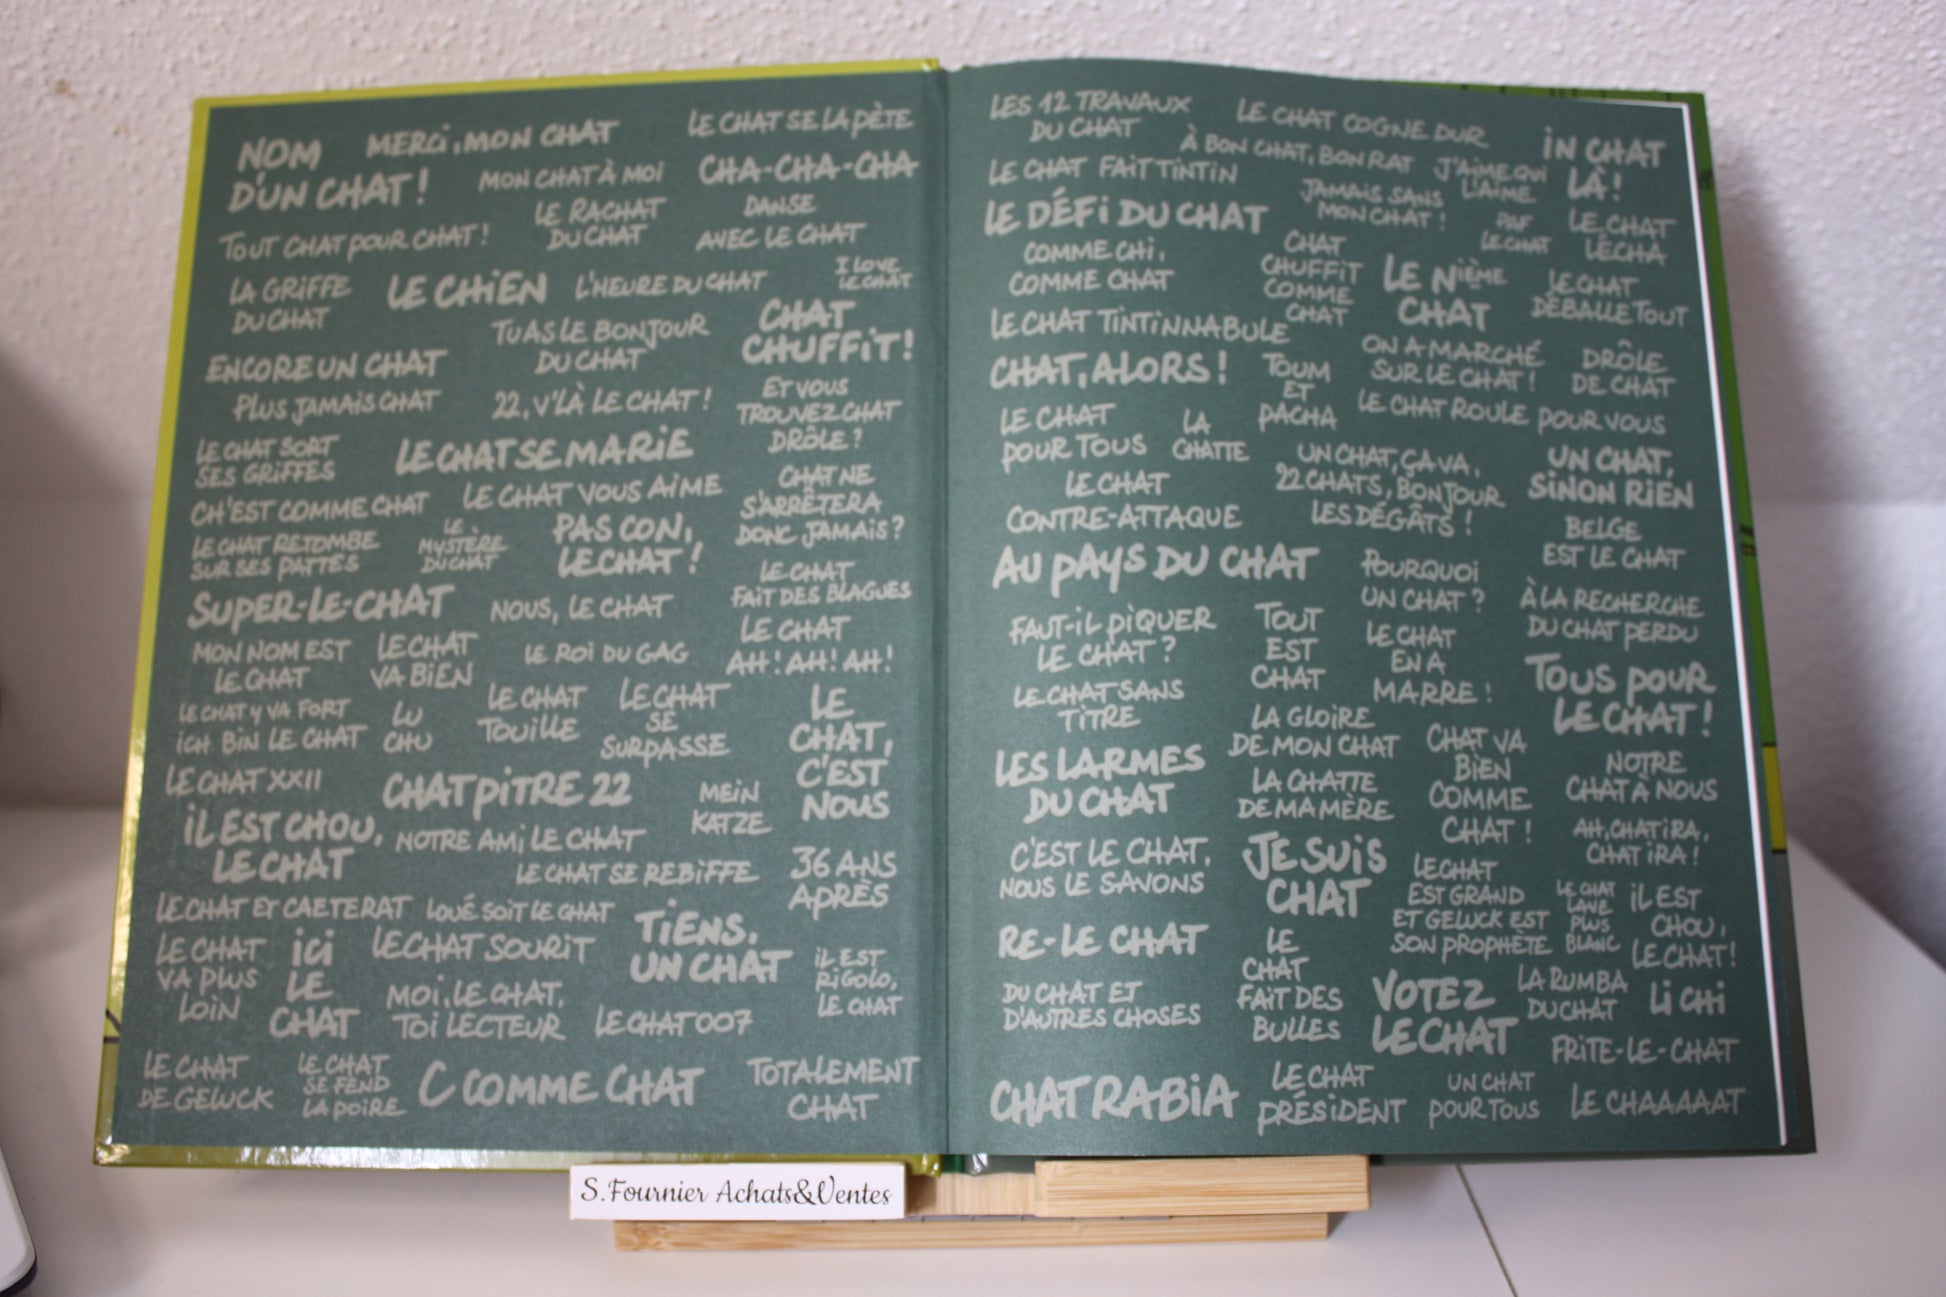 NOM
D'UN CHAT !
MERCi, MON CHAT
LE CHAT SE LA PÈTE
MON CHAT À MOI
CHA-CHA-CHA
TOUT CHAT POUR CHAT !
LE RACHAT
DU CHAT
DANSE
AVEC LE CHAT
LA GRiFFE
DU CHAT
LE CHiEN
L'HEURE DU CHAT
I LOVE
LE CHAT
TU AS LE BONJOUR
DU CHAT
CHAT
CHUFFiT !
ENCORE UN CHAT
PLUS JAMAiS CHAT
22, V'LÀ LE CHAT !
ET VOUS
TROUVEZ CHAT
DRÔLE ?
LE CHAT SORT
SES GRiFFES
LE CHAT SE MARiE
CH'EST COMME CHAT
LE CHAT VOUS AiME
CHAT NE
S'ARRÊTERA
DONC JAMAiS ?
LE CHAT RETOMBE
SUR SES PATTES
LE
MYSTÈRE
DU CHAT
PAS CON,
LE CHAT !
LE CHAT
FAiT DES BLAGUES
SUPER-LE-CHAT
NOUS, LE CHAT
LE CHAT
AH ! AH ! AH !
MON NOM EST
LE CHAT
LE CHAT
VA BiEN
LE ROi DU GAG
LE CHAT Y VA FORT
iCH BiN LE CHAT
LU
CHU
LE CHAT
TOUiLLE
LE CHAT
SE
SURPASSE
LE
CHAT,
C'EST
NOUS
LE CHAT XXII
CHATPiTRE 22
MEiN
KATZE
iL EST CHOU,
LE CHAT
NOTRE AMi LE CHAT
LE CHAT SE REBiFFE
36 ANS
APRÈS
LE CHAT ET CAETERAT
LOUÉ SOiT LE CHAT
TiENS,
UN CHAT
LE CHAT
VA PLUS
LOiN
iCi
LE
CHAT
LE CHAT SOURiT
MOi, LE CHAT,
TOi LECTEUR
LE CHAT 007
iL EST
RiGOLO,
LE CHAT
LE CHAT
DE GELUCK
LE CHAT
SE FEND
LA POiRE
C COMME CHAT
TOTALEMENT
CHAT
LES 12 TRAVAUX
DU CHAT
LE CHAT COGNE DUR
iN CHAT
LÀ !
À BON CHAT, BON RAT
J'AiME QUi
L'AiME
LE CHAT FAiT TiNTiN
JAMAiS SANS
MON CHAT !
LE DÉFi DU CHAT
PAF
LE CHAT
LE CHAT
LÉCHA
COMME CHi,
COMME CHAT
CHAT
CHUFFiT
COMME
CHAT
LE NiÈME
CHAT
LE CHAT
DÉBALLE TOUT
LE CHAT TiNTiNNABULE
CHAT, ALORS !
TOUM
ET
PACHA
ON A MARCHÉ
SUR LE CHAT !
DRÔLE
DE CHAT
LE CHAT
POUR TOUS
LA
CHATTE
LE CHAT ROULE POUR VOUS
LE CHAT
CONTRE-ATTAQUE
UN CHAT, ÇA VA,
22 CHATS, BONJOUR
LES DÉGÂTS !
UN CHAT,
SiNON RiEN
BELGE
EST LE CHAT
AU PAYS DU CHAT
POURQUOi
UN CHAT ?
À LA RECHERCHE
DU CHAT PERDU
FAUT-iL PiQUER
LE CHAT ?
TOUT
EST
CHAT
LE CHAT
EN A
MARRE !
TOUS POUR
LE CHAT !
LE CHAT SANS
TiTRE
LA GLOiRE
DE MON CHAT
CHAT VA
BiEN
COMME
CHAT !
NOTRE
CHAT À NOUS
LES LARMES
DU CHAT
LA CHATTE
DE MA MÈRE
AH, CHAT iRA,
CHAT iRA !
C'EST LE CHAT,
NOUS LE SAVONS
JE SUiS
CHAT
LE CHAT
EST GRAND
ET GELUCK EST
SON PROPHÈTE
LE CHAT
LAVE
PLUS
BLANC
iL EST
CHOU,
LE CHAT !
RE-LE CHAT
LE
CHAT
FAiT DES
BULLES
DU CHAT ET
D'AUTRES CHOSES
VOTEZ
LE CHAT
LA RUMBA
DU CHAT
Li CHi
FRiTE-LE-CHAT
CHATRABiA
LE CHAT
PRÉSiDENT
UN CHAT
POUR TOUS
LE CHAAAAAT
S.Fournier Achats&Ventes